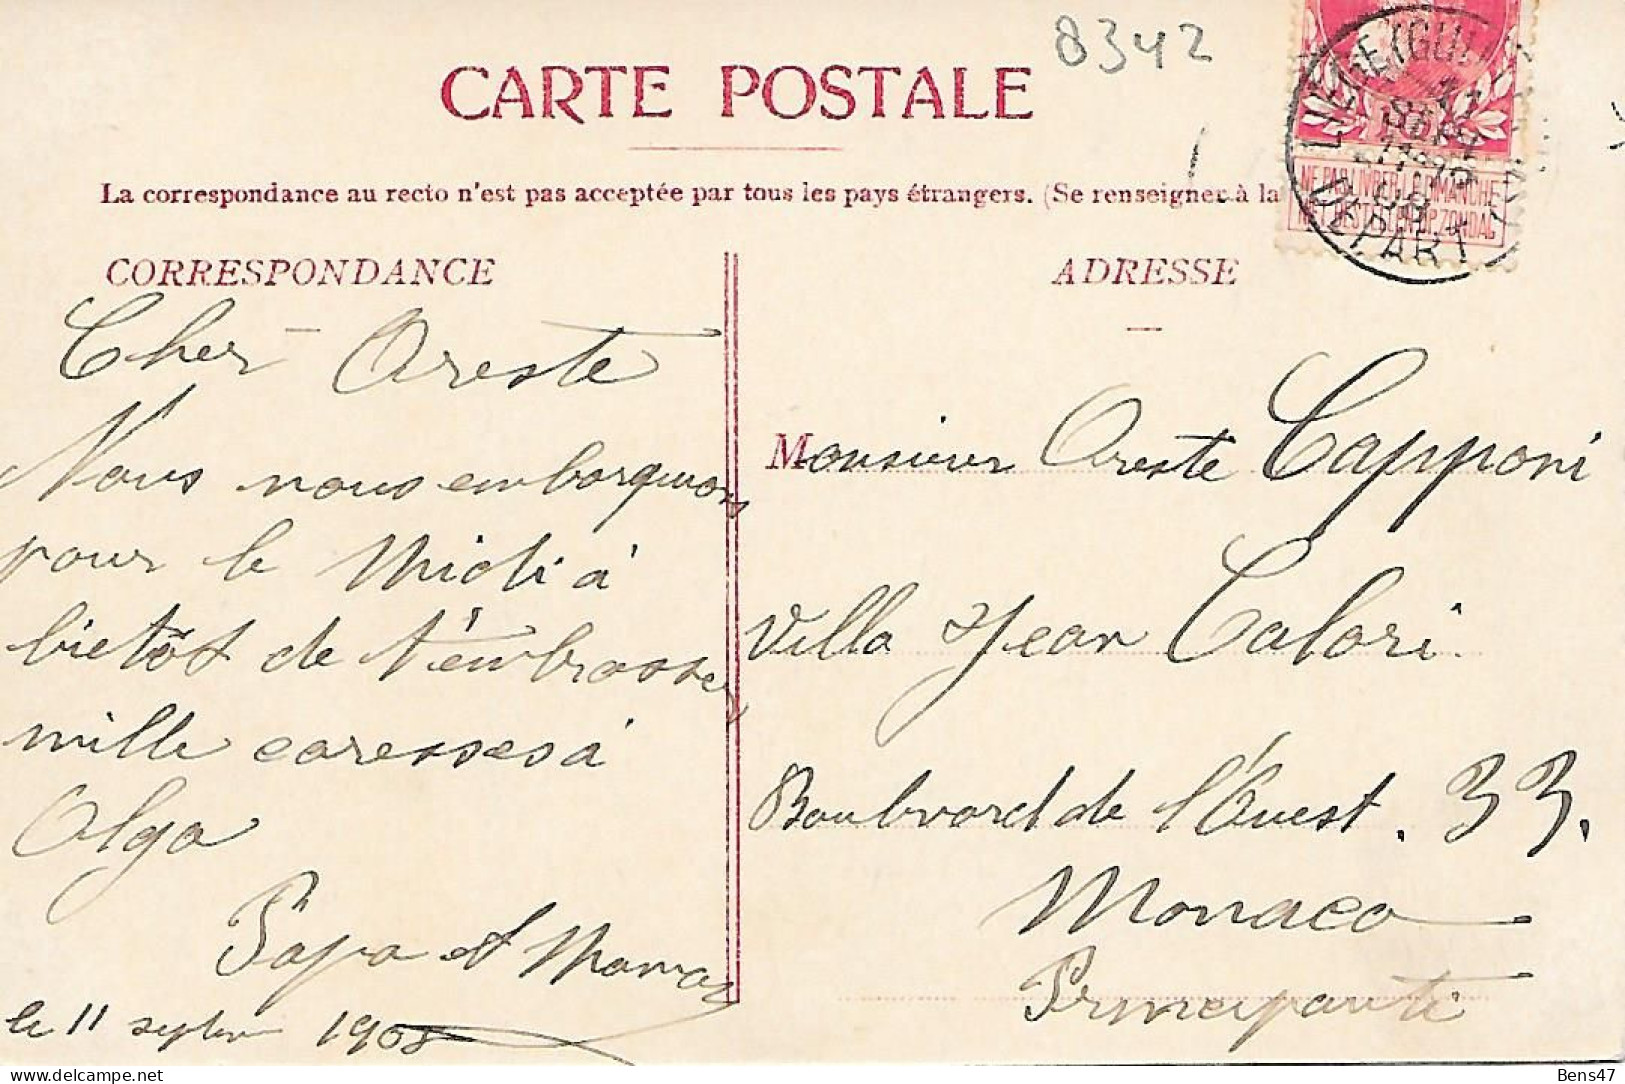 8342
CARTE POSTALE
La correspondance au recto n'est pas acceptée par tous les pays étrangers. (Se renseigner à la
CORRESPONDANCE
Cher Oreste
Nous nous embarquons
pour le Midi à
bietôt de t'embrasser
mille caresses à
Olga
Papa et Maman
le 11 septbre 1908
ADRESSE
Monsieur Oreste Capponi
Villa Jean Calori.
Boulvard de l'Ouest. 33.
Monaco
Principauté
LIEGE (GUI
11
SEPT
08
DEPART
NE PAS LIVRER LE DIMANCHE
NIET BESTELLEN OP ZONDAG
Bens47